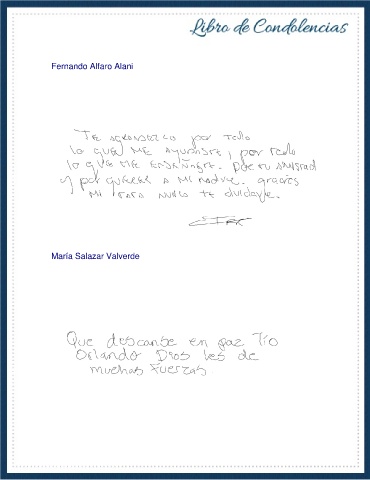 Libro de Condolencias
Fernando Alfaro Alani
Te agradezco por todo
lo que me ayudaste, por todo
lo que me enseñaste. Por tu amistad
y por querer a mi madre. gracias
mi tata nunca te olvidaré.
María Salazar Valverde
Que descanse en paz Tío
Orlando Dios les de
muchas fuerzas.